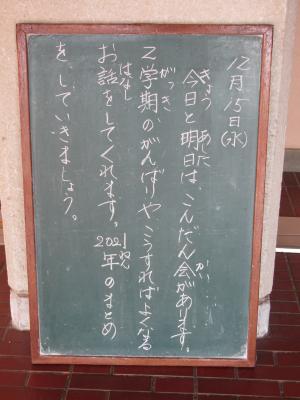 12月15日(水)
今日と明日は、こんだん会があります。
2学期の、がんばりや こうすればよくなる
お話をしてくれます。2021年のまとめ
を、していきましょう。